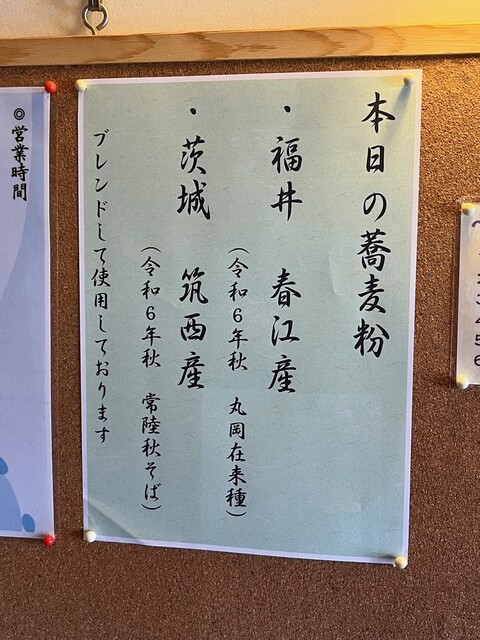 本日の蕎麦粉
・福井　春江産
（令和６年秋　丸岡在来種）
・茨城　筑西産
（令和６年秋　常陸秋そば）
ブレンドして使用しております
◎営業時間